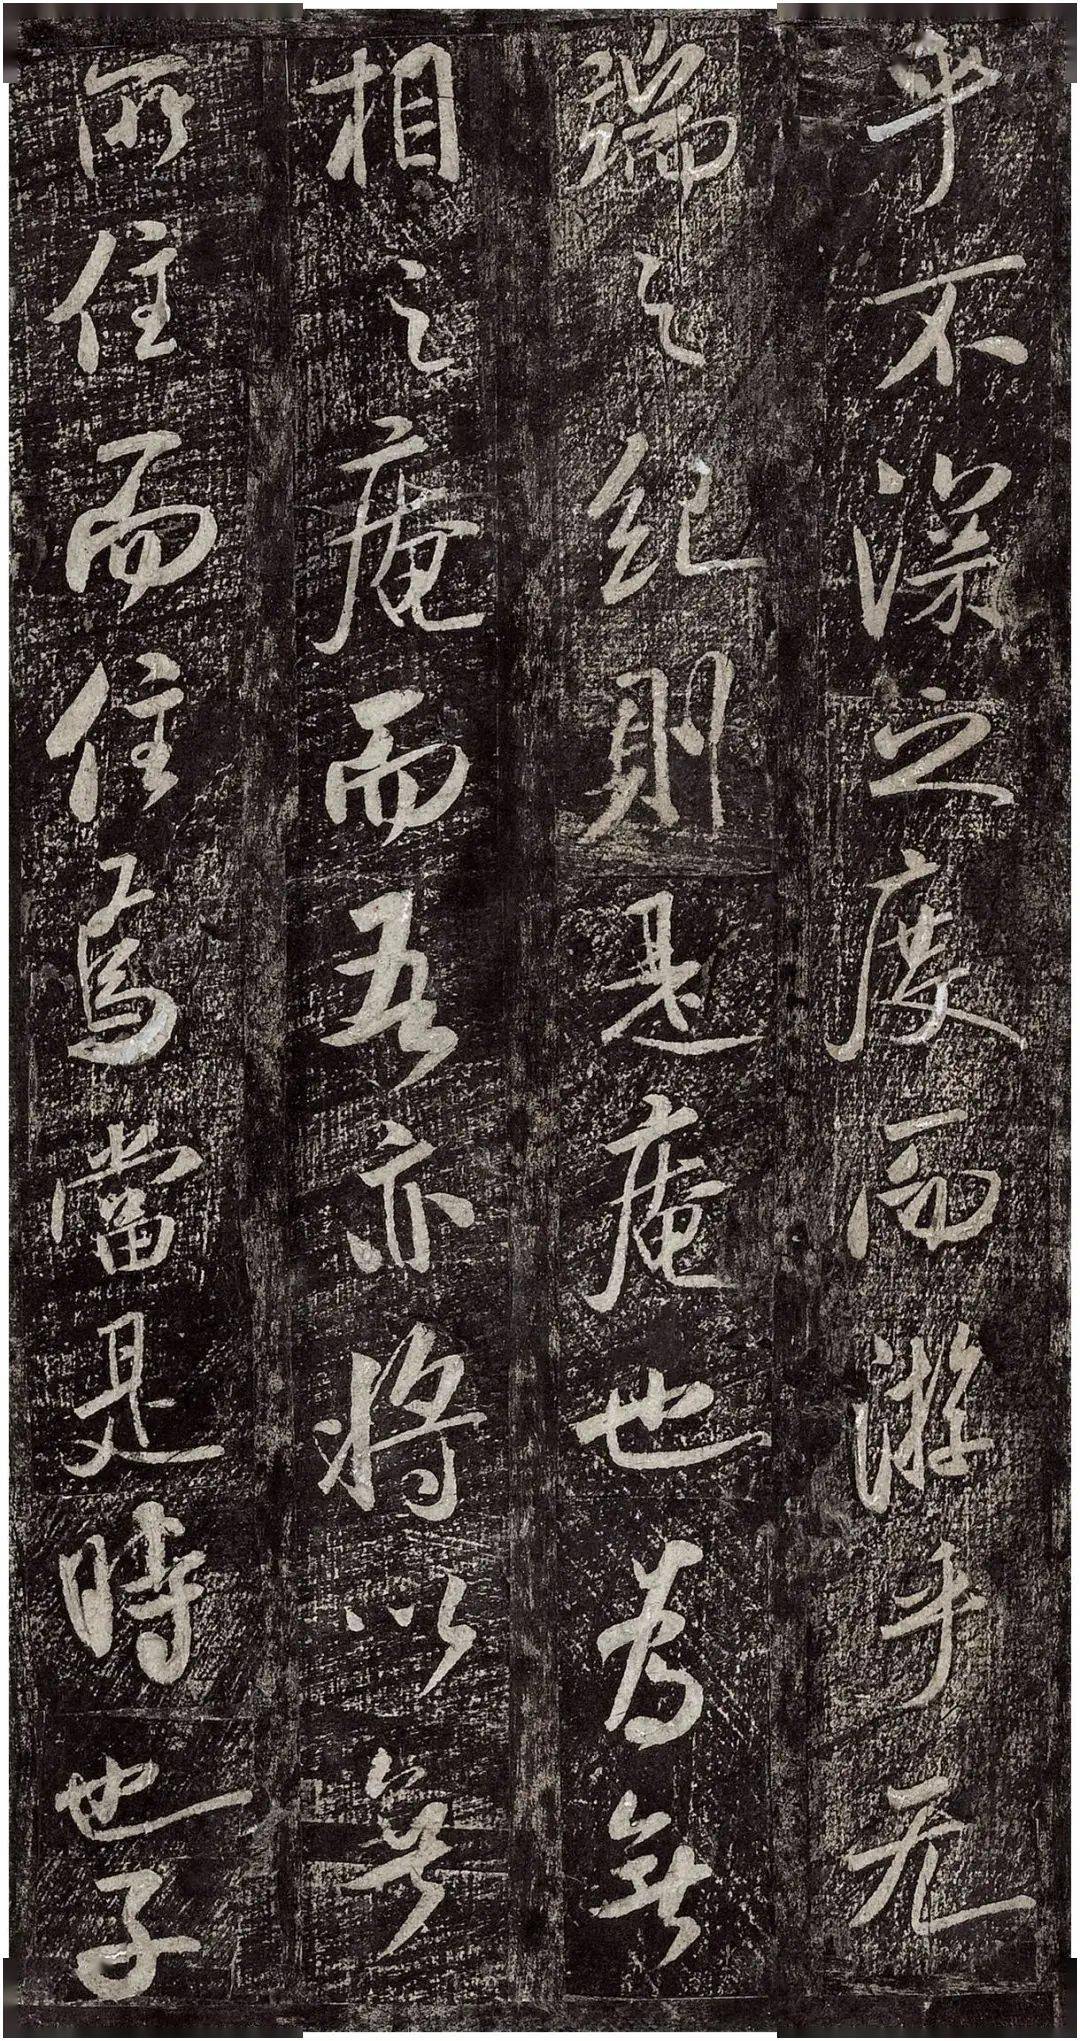 乎不深之度而游乎无
端之紀則是庵也為無
相之庵而吾亦將以無
所住而住焉當是時也子